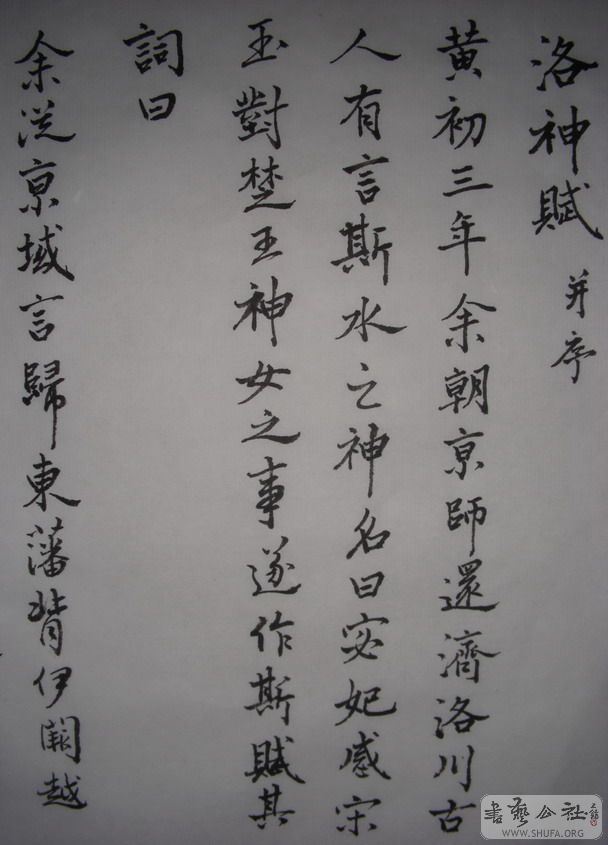 洛神賦 并序
黄初三年余朝京師還濟洛川古
人有言斯水之神名曰宓妃感宋
玉對楚王神女之事遂作斯賦其
詞曰
余從京域言歸東藩背伊闕越
書藝公社
WWW.SHUFA.ORG